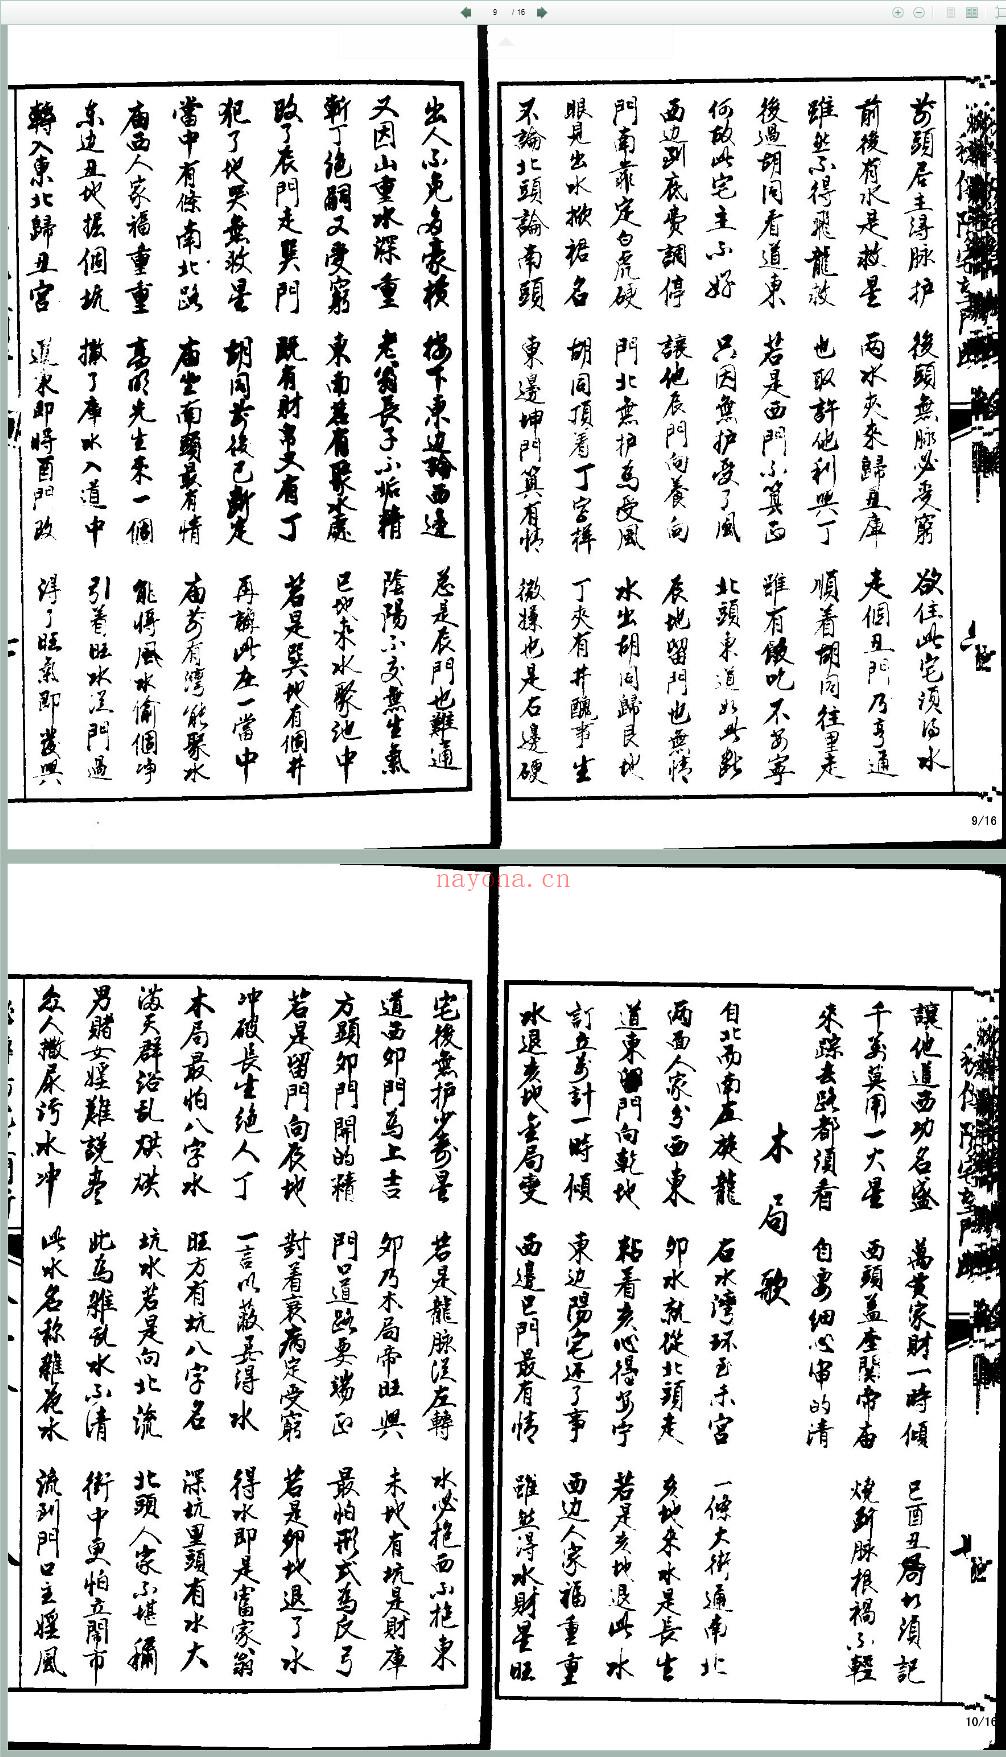 9 / 16
前頭居主得脉护 後頭無脉必受窮 欲住此宅须得水
前後有水是救星 兩水夾來歸丑庫 走個丑門乃亨通
雖然不得飛龍救 也取許他利興丁 順着胡同往里走
後過胡同看道東 若是西門不算正 雖有飯吃不安寧
何故此宅主不好 只因無护受了風 北頭東道如此断
西边到底费調停 讓他辰門向養向 辰地留門也無情
門南靠定白虎硬 門北無护為受風 水出胡同歸艮地
眼見出水掀裙名 胡同頂着丁字样 丁夾有井醜事生
不論北頭論南頭 東邊坤門算有情 微嫌也是右邊硬
出人不免多豪横 按下東边論西邊 总是辰門也難通
又因山重水深重 老翁長子不姤精 陰陽不交無生氣
斬丁絕嗣又受窮 東南若有聚水處 巳地來水聚池中
改了辰門走巽門 既有財帛又有丁 若是巽地有個井
犯了地哭無救星 胡同前後已断定 再講此庄一當中
當中有條南北路 庙坐南頭最有情 庙前有灣能聚水
庙西人家福重重 高明先生來一個 能將風水偷個净
东边丑地掘個坑 撤了庫水入道中 引着旺水溪門過
轉入東北歸丑宮 進來即將酉門改 得了旺氣即發興
9/16
nayona.cn
讓他道西功名盛 萬貫家財一時傾 巳酉丑局切須記
千萬莫用一火星 西頭盖座関帝庙 燒斷脉根禍不輕
來踪去路都須看 自要细心审的清
木局歌
自北而南左旋龍 右水灣环到未宮 一條大街通南北
两面人家分西東 卯水就從北頭走 亥地来水是長生
道東留門向乾地 粘着亥心得安宁 若是亥地退此水
訂立万計一時傾 東边陽宅还了事 西边人家福重重
水退亥地金局变 西邊巳門最有情 雖然得水財星旺
宅後無护少寿星 若是龍脉從左轉 水必抱西不抱東
道西卯門為上吉 卯乃木局帝旺興 未地有坑是財庫
方顕卯門開的精 門口道路要端正 最怕形式為反弓
若是留門向辰地 對着衰病定受窮 若是卯地退了水
冲破長生絕人丁 一言以蔽暴得水 得水即是富家翁
木局最怕八字水 旺方有坑八字名 深坑里頭有水大
滿天群浴乱烘烘 坑水若是向北流 北頭人家不堪稱
男賭女婬難説盡 此為雜乱水不清 街中更怕立閙市
众人撒尿污水冲 此水名称雜花水 流到門口主婬風
10/16